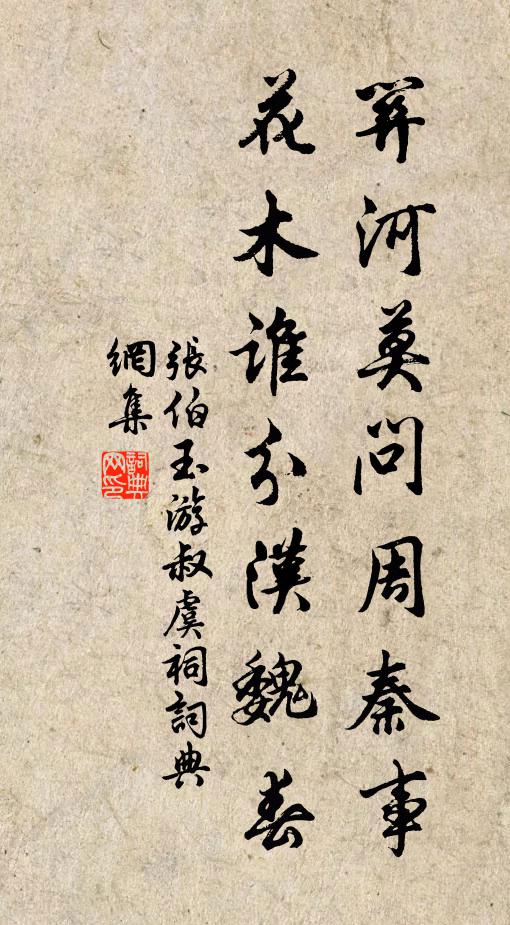 關河莫問周秦事
花木誰分漢魏春
張伯玉游叔虞祠詞典
網集
詞典
网印